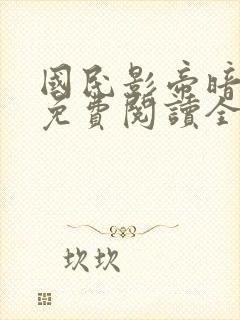 國民影帝暗
免費閱讀全
坎坎